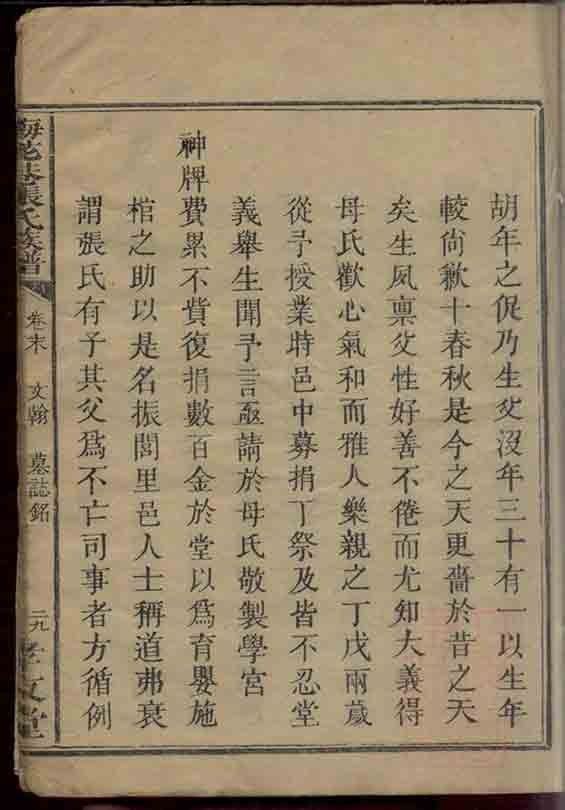 胡年之促乃生父沒年三十有一以生年
較尚歉十春秋是今之天更嗇於昔之天
矣生夙禀父性好善不倦而尤知大義得
母氏歡心氣和而雅人樂親之丁戊兩歲
從予授業時邑中募捐丁祭及皆不忍堂
義舉生聞予言亟請於母氏敬製學宮
神牌費累不貲復捐數百金於堂以爲育嬰施
棺之助以是名振閭里邑人士稱道弗衰
謂張氏有子其父爲不亡司事者方循例
梅花巷張氏族譜 卷末 文翰 墓誌銘 二九 孝友堂